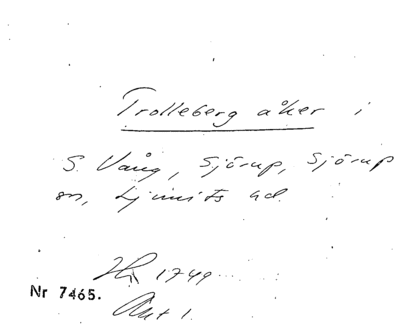 Trolleberg åker i
S. Vång, Sjörup, Sjörup
sn, Ljunits hd.
1749
Nr 7465.
Akt 1.